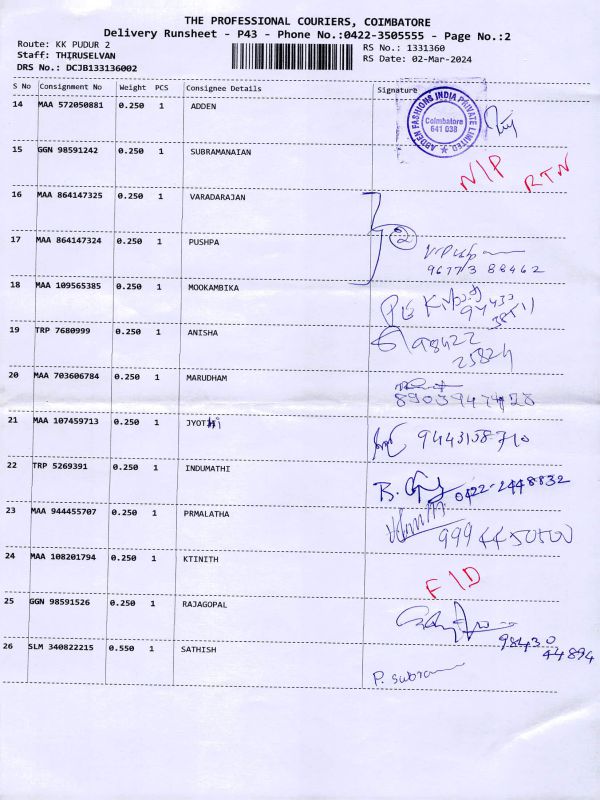 THE PROFESSIONAL COURIERS, COIMBATORE
Delivery Runsheet - P43 - Phone No.:0422-3505555 - Page No.:2
Route: KK PUDUR 2
RS No.: 1331360
Staff: THIRUSELVAN
RS Date: 02-Mar-2024
DRS No.: DCJB133136002
S No Consignment No Weight PCS Consignee Details Signature
14 MAA 572050881 0.250 1 ADDEN
ADDEN FASHIONS INDIA PRIVATE LIMITED
Coimbatore
641 038
15 GGN 98591242 0.250 1 SUBRAMANAIAN
N/P RTN
16 MAA 864147325 0.250 1 VARADARAJAN
2
17 MAA 864147324 0.250 1 PUSHPA
96773 88462
18 MAA 109565385 0.250 1 MOOKAMBIKA
94430
19 TRP 7680999 0.250 1 ANISHA
98422
25824
20 MAA 703606784 0.250 1 MARUDHAM
21 MAA 107459713 0.250 1 JYOTHI
9443158710
22 TRP 5269391 0.250 1 INDUMATHI
B. 0422-2448832
23 MAA 944455707 0.250 1 PRMALATHA
9994450500
24 MAA 108201794 0.250 1 KTINITH
F/D
25 GGN 98591526 0.250 1 RAJAGOPAL
98430
44894
26 SLM 340822215 0.550 1 SATHISH
P. Subram